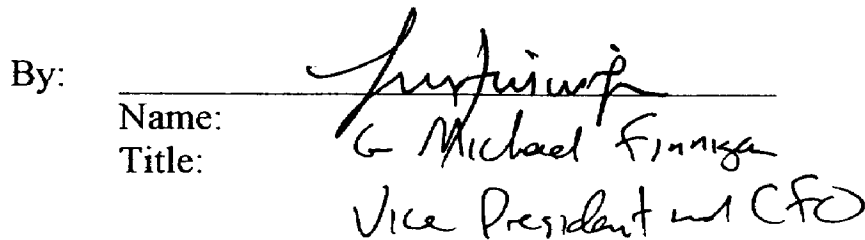 By:
Name: G Michael Finnigan
Title:
Vice President and CFO